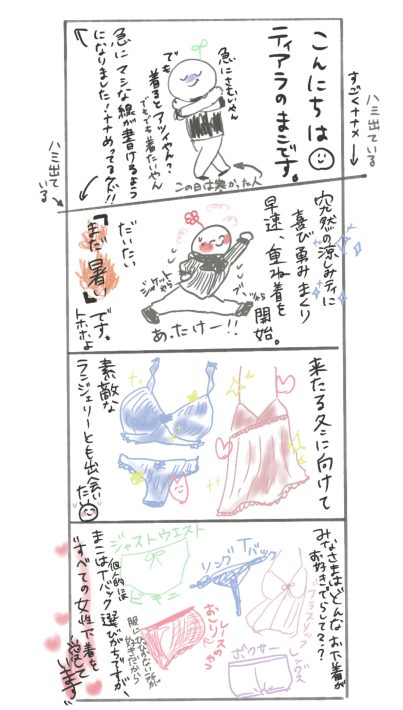 こんにちは
ティアラのまこです。
急にさむいやん
でも
着るとアツイやん?
でもでも着たいやん
この日は寒かった人
急にマシな線が書けるよう
になりました!ナナメってるケド!!
すごくナナメ
ハミ出ている
ハミ出て
いる
突然の涼しみデイに
喜び勇みまくり
早速、重ね着を
開始。
ジャケットやら
ブーツやら
あったけー!!
だいたい
「まだ暑い」
です。
トホホよ
来たる冬に向けて
素敵な
ランジェリーとも出会い
た
みなさまはどんなお下着が
お好きでらして??
フラワーソング
ソングTバック
ジャストウエスト
ビキニ
レースの
おしり
ボクサー
レングス
まこは個人的には
Tバック選びがちですが、
服にひびかない所が
好きだから
"すべての女性下着を
愛して
います"